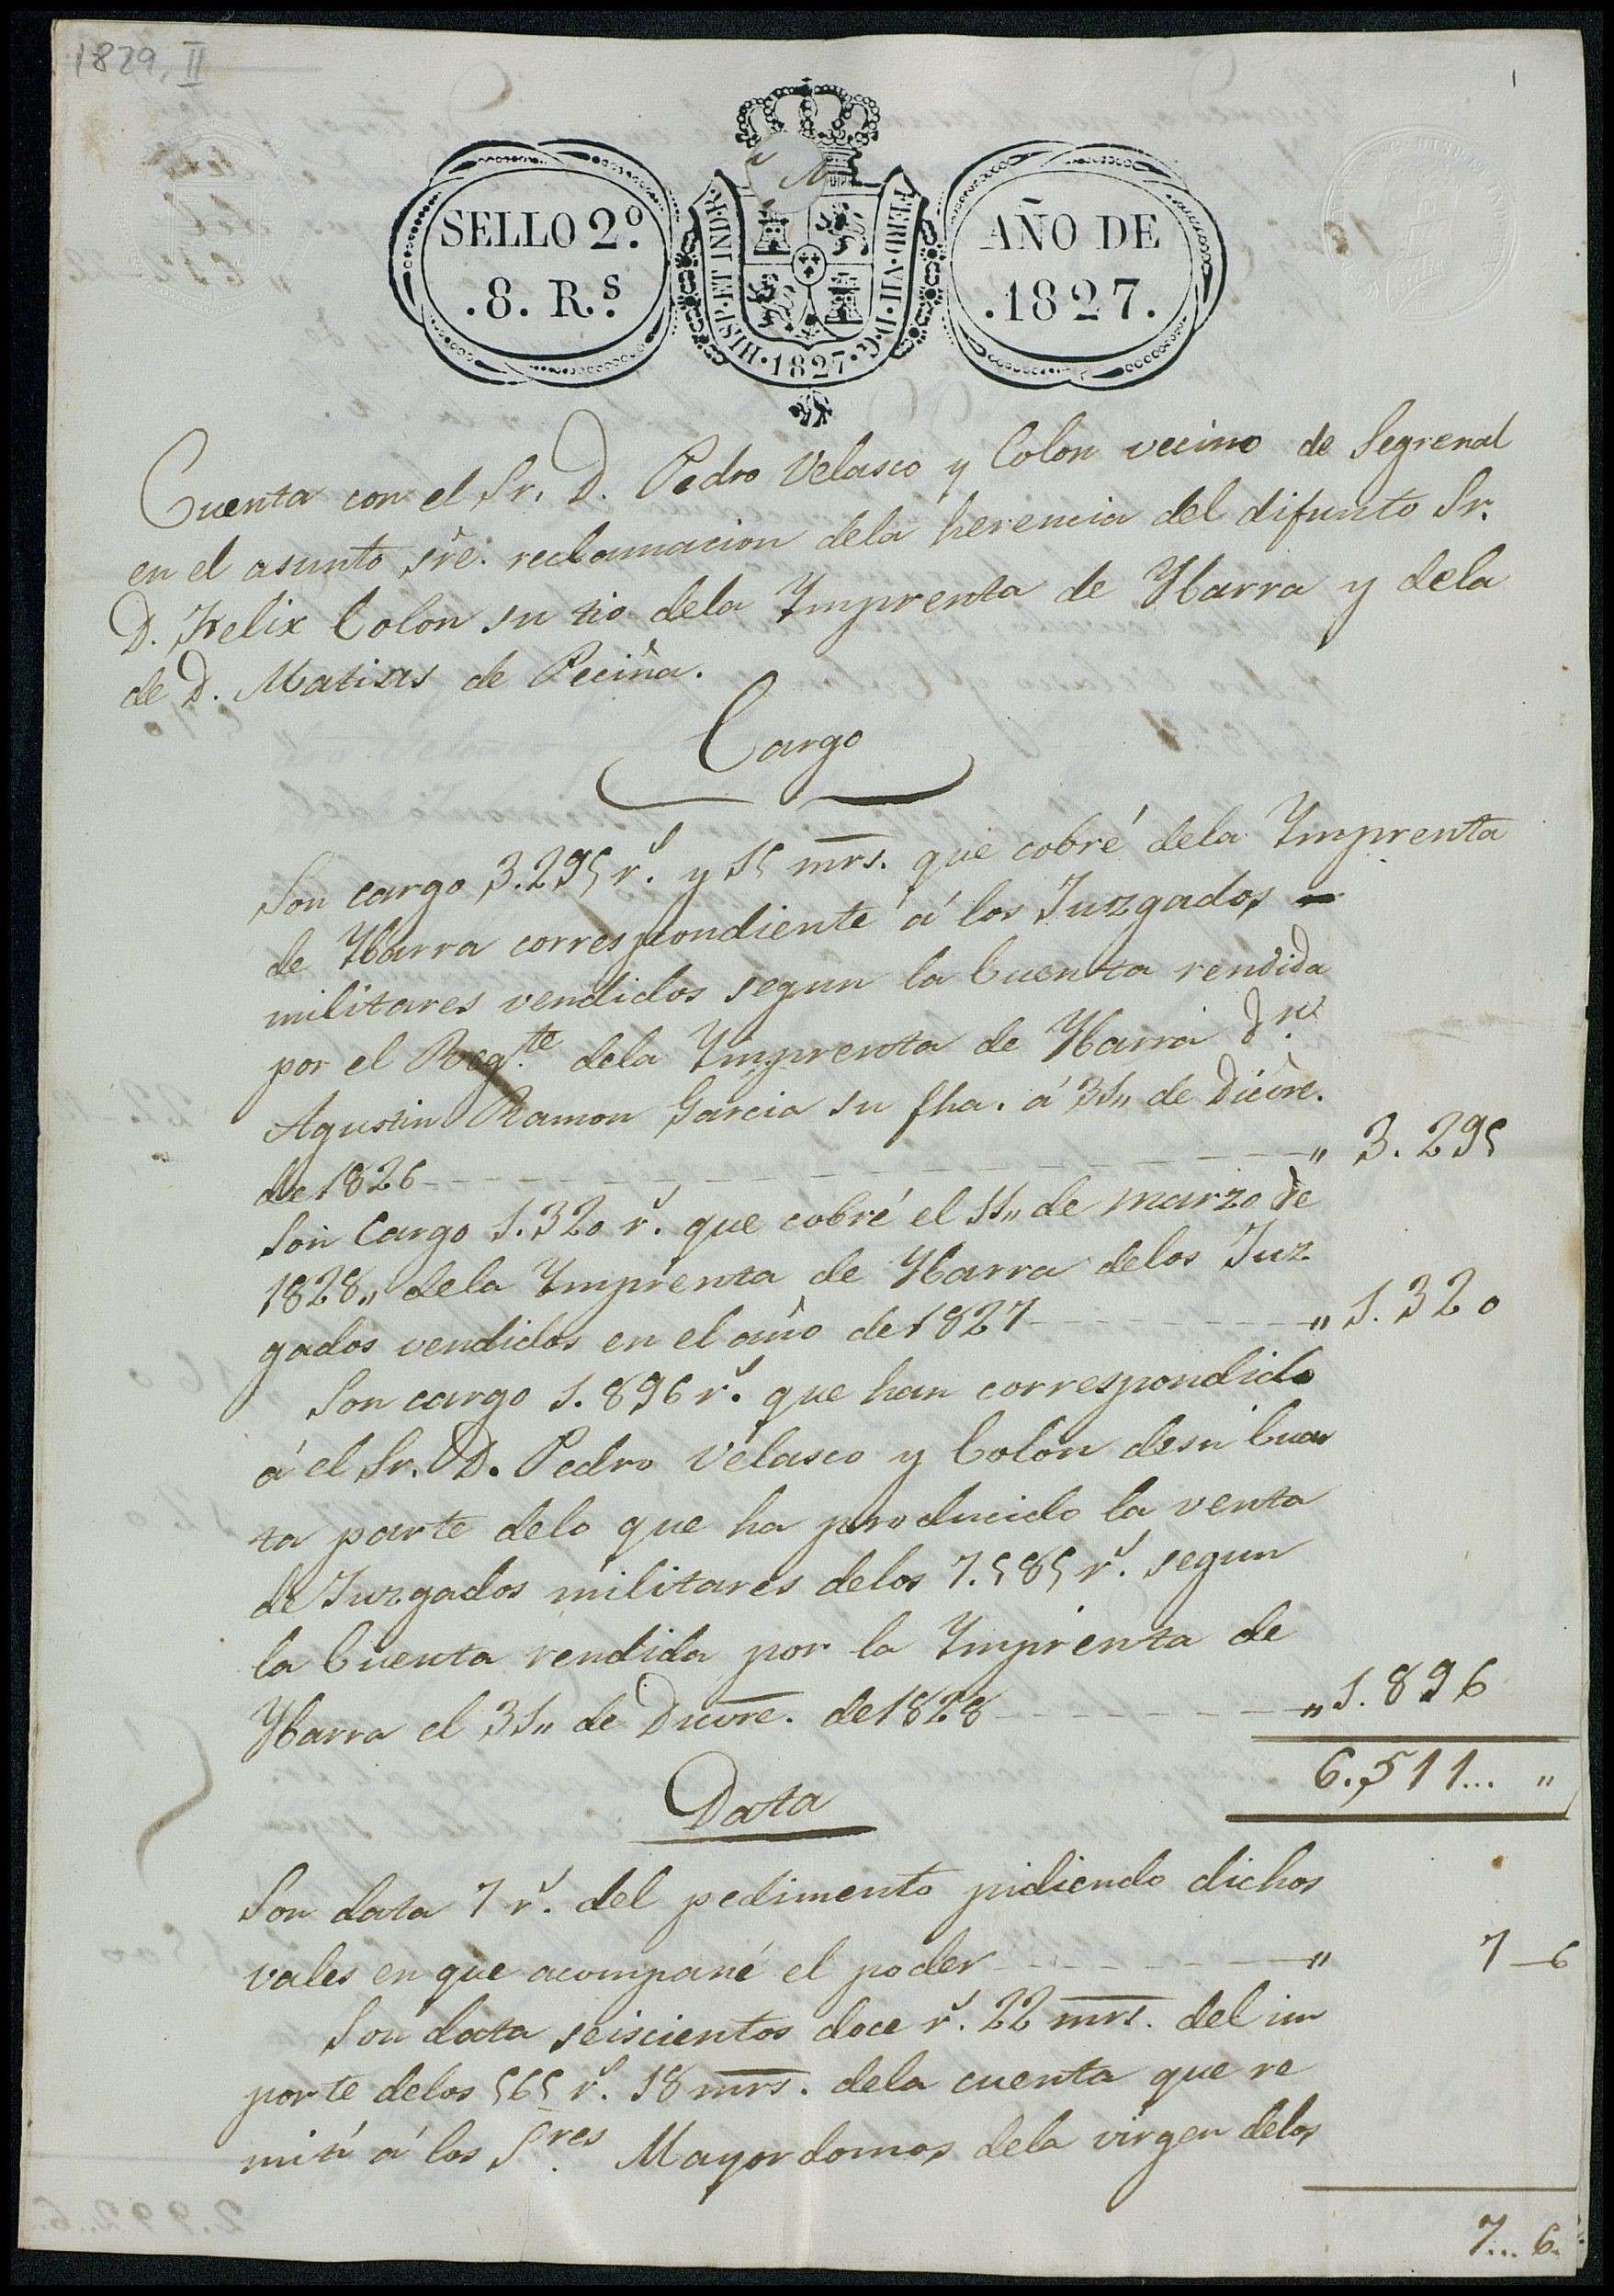 1829, II
1
SELLO 2º.
.8. R.s
HISP. ET IND. R.
FERD. VII. D. G.
.1827.
AÑO DE
.1827.
Cuenta con el Sr. D. Pedro Velasco y Colon vecino de Segrenal
en el asunto sre. reclamacion dela herencia del difunto Sr.
D. Felix Colon su tio dela Ymprenta de Ybarra y dela
de D. Matias de Peciña.
Cargo
Son cargo 3.295 rs. y 15 mrs. que cobré dela Ymprenta
de Ybarra correspondiente á los Juzgados
militares vendidos segun la Cuenta rendida
por el Reg.te dela Ymprenta de Ybarra Dn.
Agustin Ramon Garcia su fha. á 31,, de Dicvre.
de 1826 ,, 3.295
Son Cargo 1.320 rs. que cobré el 11,, de marzo de
1828,, dela Ymprenta de Ybarra delos Juz
gados vendidos en el año de 1827 ,, 1.320
Son cargo 1.896 rs. que han correspondido
á el Sr. D. Pedro Velasco y Colon desu Cuar
ta parte delo que ha producido la venta
de Juzgados militares delos 7.585 rs. segun
la Cuenta rendida por la Ymprenta de
Ybarra el 31,, de Dicvre. de 1828 ,, 1.896
6.511... ,,
Data
Son data 7 rs. del pedimento pidiendo dichos
vales en que acompañé el poder ,, 7 - 6
Son data seiscientos doce rs. 22 mrs. del im
porte delos 565 rs. 18 mrs. dela cuenta que re
mití á los S.res Mayordomos dela virgen delos
7... 6.